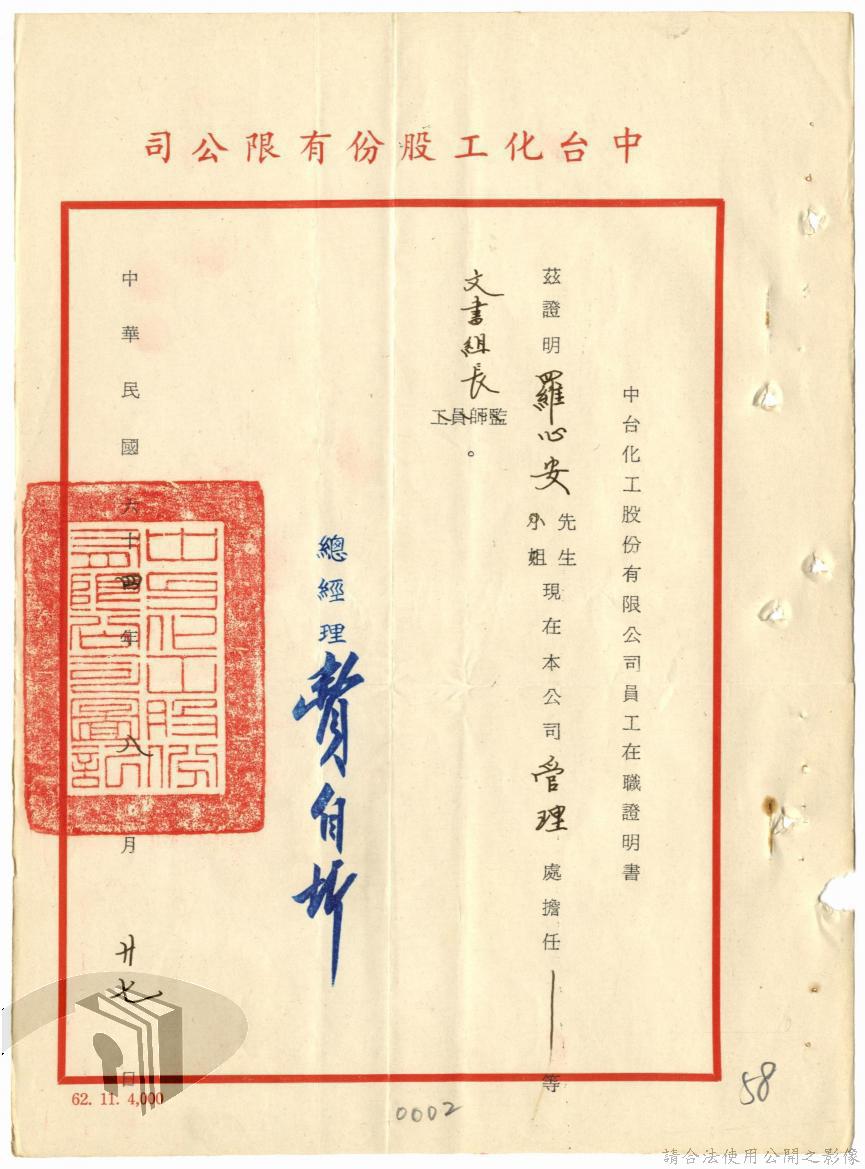 中台化工股份有限公司
中台化工股份有限公司員工在職證明書
茲證明羅心安先生小姐現在本公司管理處擔任—等
文書組長工員師監。
總經理費自圻
中華民國六十四年八月廿七日
中台化工股份有限公司圖記
62. 11. 4,000
0002
58
請合法使用公開之影像